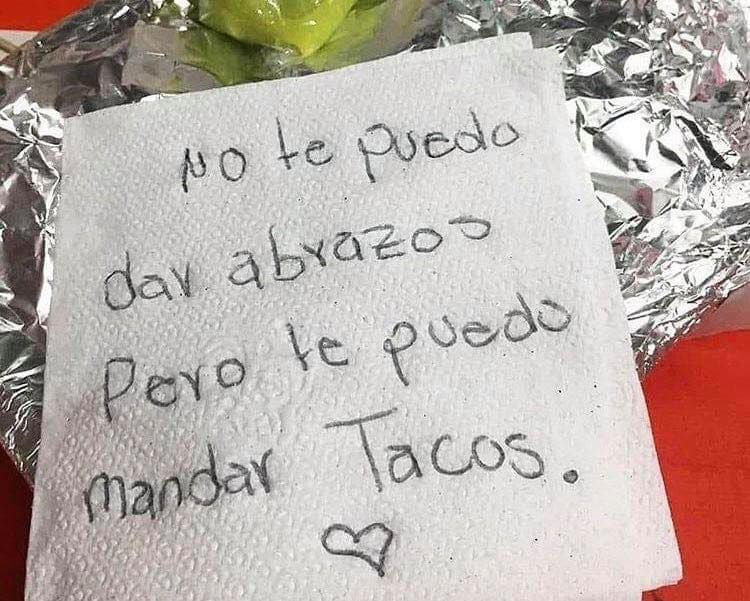 No te puedo
dar abrazos
Pero te puedo
mandar Tacos.